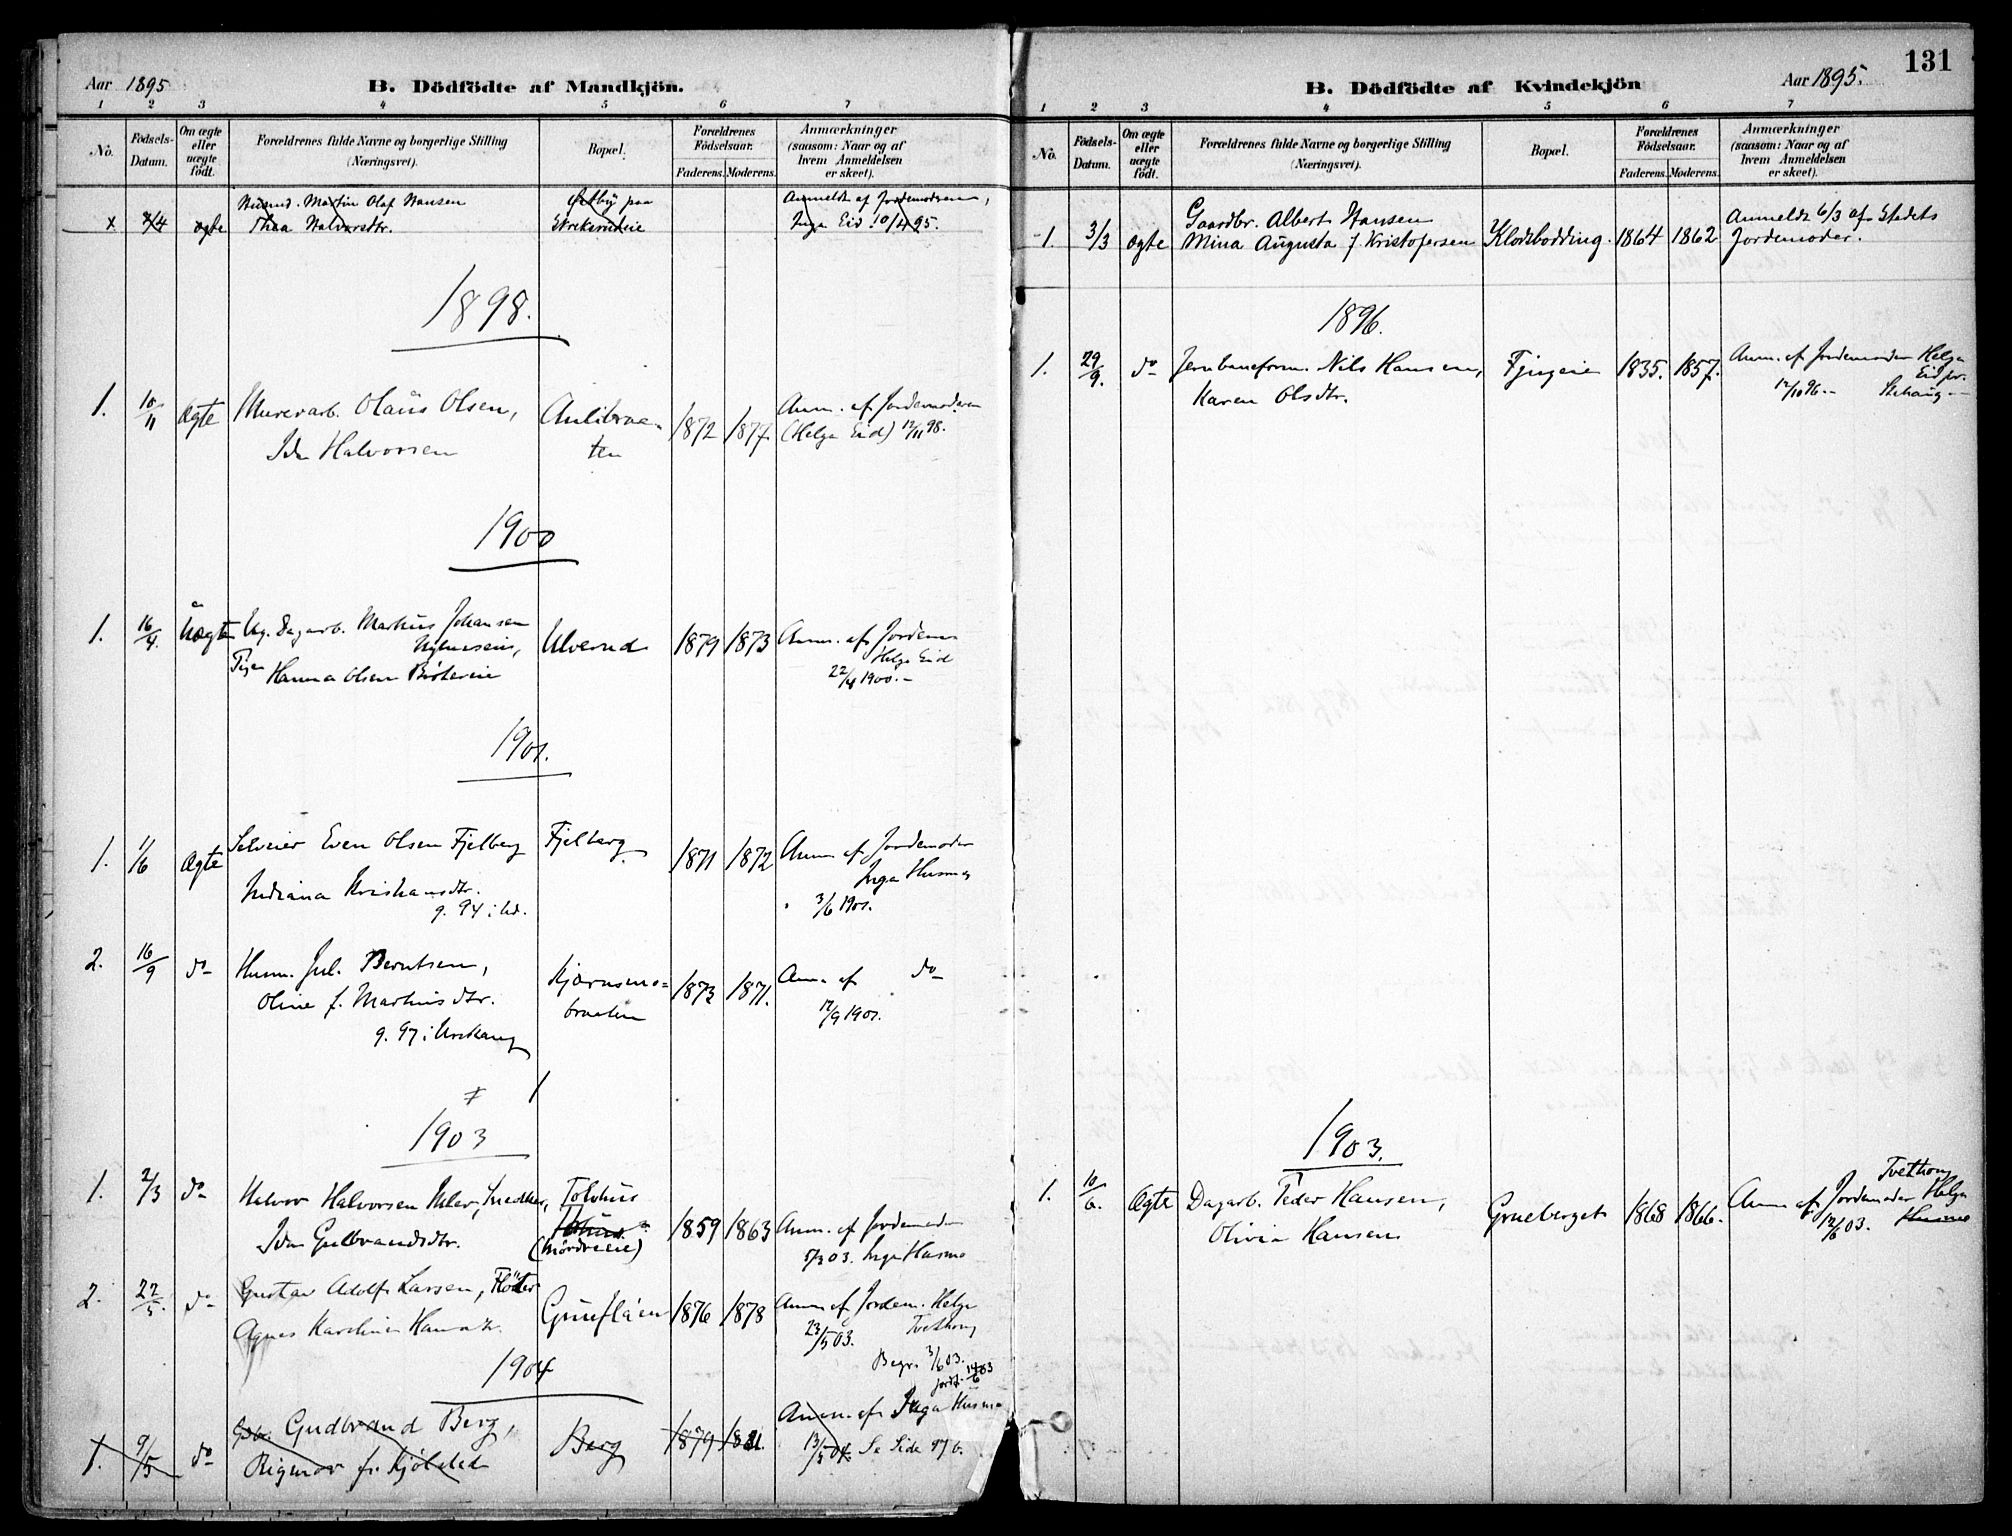 131
Aar 1895
B. Dödfödte af Mandkjön.
1 2 3 4 5 6 7
No.
Födsels-Datum.
Om ægte eller uægte födt.
Forældrenes fulde Navne og borgerlige Stilling
(Næringsvei).
Bopæl.
Forældrenes Födselsaar.
Faderens. Moderens.
Anmærkninger
(saasom: Naar og af
hvem Anmeldelsen
er skeet).
Husmd. Martin Olaf Hansen
paa
Anmeldt af Jordemoderen,
x /4 ægte Thea Halvorsdtr.
Inga Eid 10/4 95.
1898.
1. 10/11 Ægte Murerarb. Olaüs Olsen,
Ida Halvorsen
Aulibraa-
ten
1872 1877.
Anm. af Jordemoderen
(Helga Eid) 12/11 98.
1900
1. 16/4. Uægte Ug. Dagarb. Markus Johansen
Pige Hanna Olsen
Ulverud
1879 1873
Anm. af Jordemor
Helga Eid
22/4 1900.-
1901.
1. 1/6 Ægte Selveier Even Olsen Fjelberg
Indiana Kristiansdtr.
g. 94 i Ud.
Fjelberg
1871 1872
Anm. af Jordemoder
Inga Husmo
3/6 1901.
2. 16/9 do Husm. Jul. Berntsen,
Oline f. Martinisdtr.
g. 97 i Urskaug
Kjærnsmo-
braaten
1873 1871.
Anm. af do
17/9 1901.
1903
1. 2/3 do Halvor Halvorsen Melev, Snedker,
Ida Gulbrandsdtr.
Tolvhus
(Mordreeie)
1859 1863
Anm. af Jordemoder
5/3 03. Inga Husmo
2. 22/5. do Gustav Adolf Larsen, Flöter
Agnes Karoline
1876 1878
Anm. af Jordem. Helga
23/5 03. Tvethoug
Begr. 3/6 03.
Jordf. 14/6 03
1904
1. 9/5 do Gbr. Gudbrand Berg,
Rigmor f. Kjölstad
Berg
1879 1881.
Anm. af Inga Husmo
13/5 04. Se Side 97 b.
B. Dödfödte af Kvindekjön
Aar 1895.
1 2 3 4 5 6 7
No.
Födsels-Datum.
Om ægte eller uægte födt.
Forældrenes fulde Navne og borgerlige Stilling
(Næringsvei).
Bopæl.
Forældrenes Födselsaar.
Faderens. Moderens.
Anmærkninger
(saasom: Naar og af
hvem Anmeldelsen
er skeet).
Gaardbr. Albert Hansen
1. 3/3 ægte Mina Augusta f. Kristofersen
Klodsbodding. 1864 1862
Anmeldt 6/3 af Stedets
Jordemoder.
1896.
1. 29/9. do Jernbaneform. Nils Hansen,
Karen Olsdtr.
1835. 1857.
Anm. af Jordemoder Helga
Eid pr.
12/10 96.-
1903.
1. 10/6. Ægte Dagarb. Peder Hansen,
Olivia Hansen
Grueberget 1868 1866.
Tvethoug
Anm. af Jordemoder Helga
12/6 03. Husmo